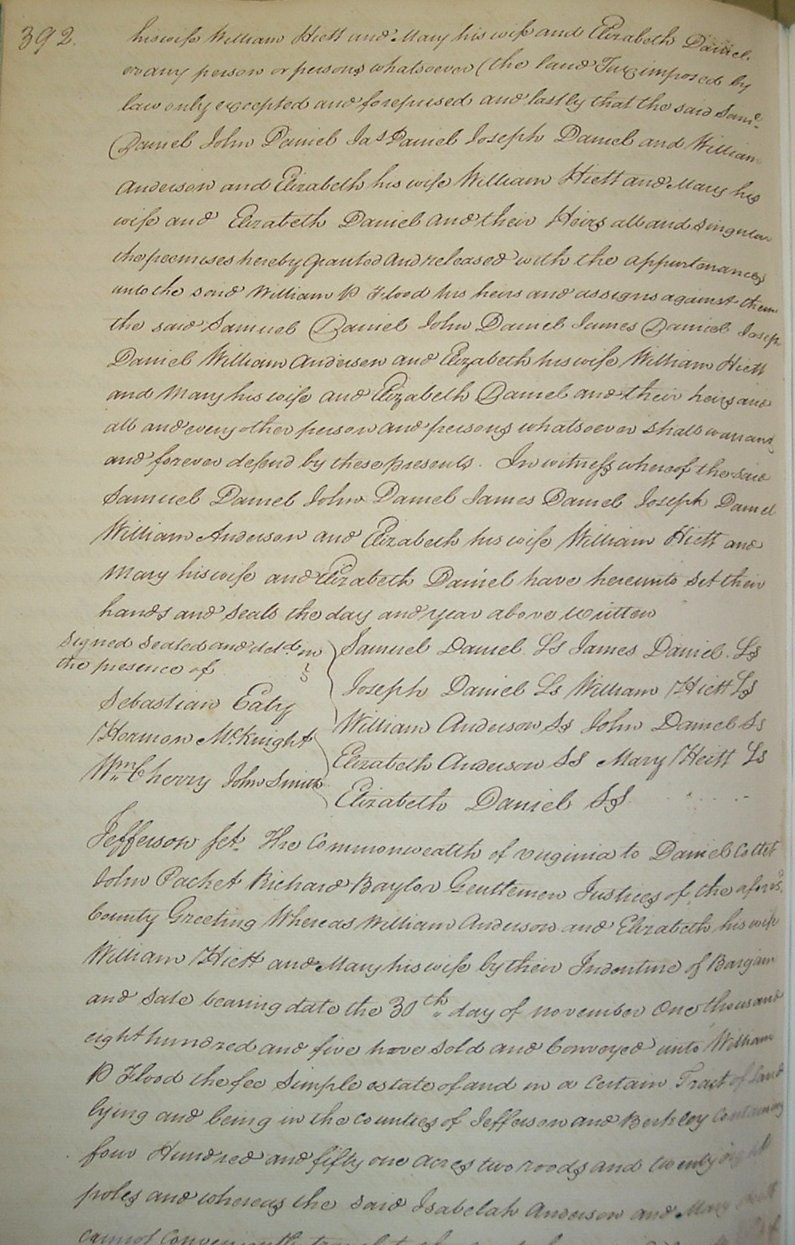 392.
his wife William Hiett and Mary his wife and Elizabeth Daniel
or any person or persons whatsoever (the land Tax imposed by
law only excepted and foreprised and lastly that the said Saml
Daniel John Daniel Jas Daniel Joseph Daniel and William
Anderson and Elizabeth his wife William Hiett and Mary his
wife and Elizabeth Daniel and their Heirs all and singular
the premises hereby granted and released with the appurtenances
unto the said William P Flood his heirs and assigns against them
the said Samuel Daniel John Daniel James Daniel Joseph
Daniel William Anderson and Elizabeth his wife William Hiett
and Mary his wife and Elizabeth Daniel and their heirs and
all and every other person and persons whatsoever shall warrant
and forever defend by these presents. In witness whereof the said
Samuel Daniel John Daniel James Daniel Joseph Daniel
William Anderson and Elizabeth his wife William Hiett and
Mary his wife and Elizabeth Daniel have hereunto set their
hands and seals the day and year above written
Signed Sealed and deld in
the presence of
Sebastian Eaty
Harmon McKnight
Wm Cherry John Smith
Samuel Daniel Ls James Daniel Ls
Joseph Daniel Ls William Hiett Ls
William Anderson Ls John Daniel Ls
Elizabeth Anderson Ls Mary Heitt Ls
Elizabeth Daniel Ls
Jefferson Sct. The Commonwealth of Virginia to Daniel Collet
John Packet Richard Baylor Gentlemen Justices of the afors'd
County Greeting Whereas William Anderson and Elizabeth his wife
William Hiett and Mary his wife by their Indenture of Bargain
and Sale bearing date the 30th day of november One thousand
eight hundred and five have sold and Conveyed unto William
P Flood the fee Simple estate of and in a certain Tract of Land
lying and being in the counties of Jefferson and Berkeley Containing
four Hundred and fifty one acres two roods and twenty eight
poles and whereas the said Isabelah Anderson and Mary Hiett
cannot Conveniently